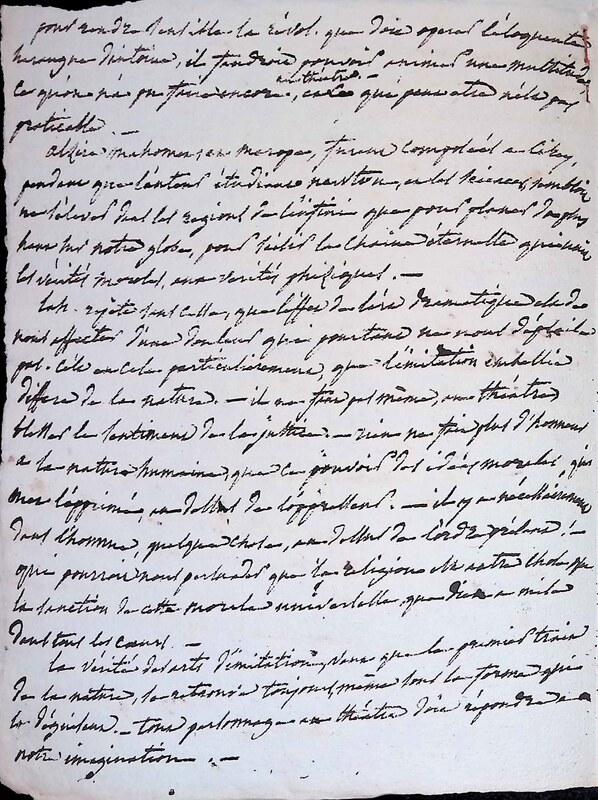 pour rendre sensible la révol. que doit operer l'éloquente
harangue d'antoine, il faudroit pouvoir animer une multitude
ce qu'on n'a pu faire encore, au théatre. et ce que peut etre n'est pas
praticable. —
alzire mahomet, et merope, furent composées a Cirey,
pendant que l'auteur étudioit newton, et les sciences, sembloit
ne s'elever dans les regions de l'histoire que pour planer de plus
haut sur notre globe, pour saisir la chaine éternelle qui unit
les vérités morales, aux verités phisiques. —
Lah. repete sans cesse, que l'effet de l'art dramatique est de
nous affecter d'une douleur qui pourtant ne nous déplaise
pas. C'est en cela particulierement, que l'imitation embellie
differe de la nature. — il ne faut pas même, au théatre
blesser le sentiment de la justice. — rien ne fait plus d'honneur
a la nature humaine, que ce pouvoir des idées morales qui
met l'opprimé, au dessus de l'oppresseur. — il y a nécessairement
dans l'homme, quelque chose, au dessus de l'ordre présent! —
qui pourroit nous persuader que la religion est autre chose que
la sanction de cette morale universelle, que dieu a mise
dans tous les cœurs. —
la vérité des arts d'imitation, veut que le premier trait
de la nature, se retrouve toujours, même sous la forme qui
le déguise. — tout personnage au théatre doit répondre a
notre imagination. —